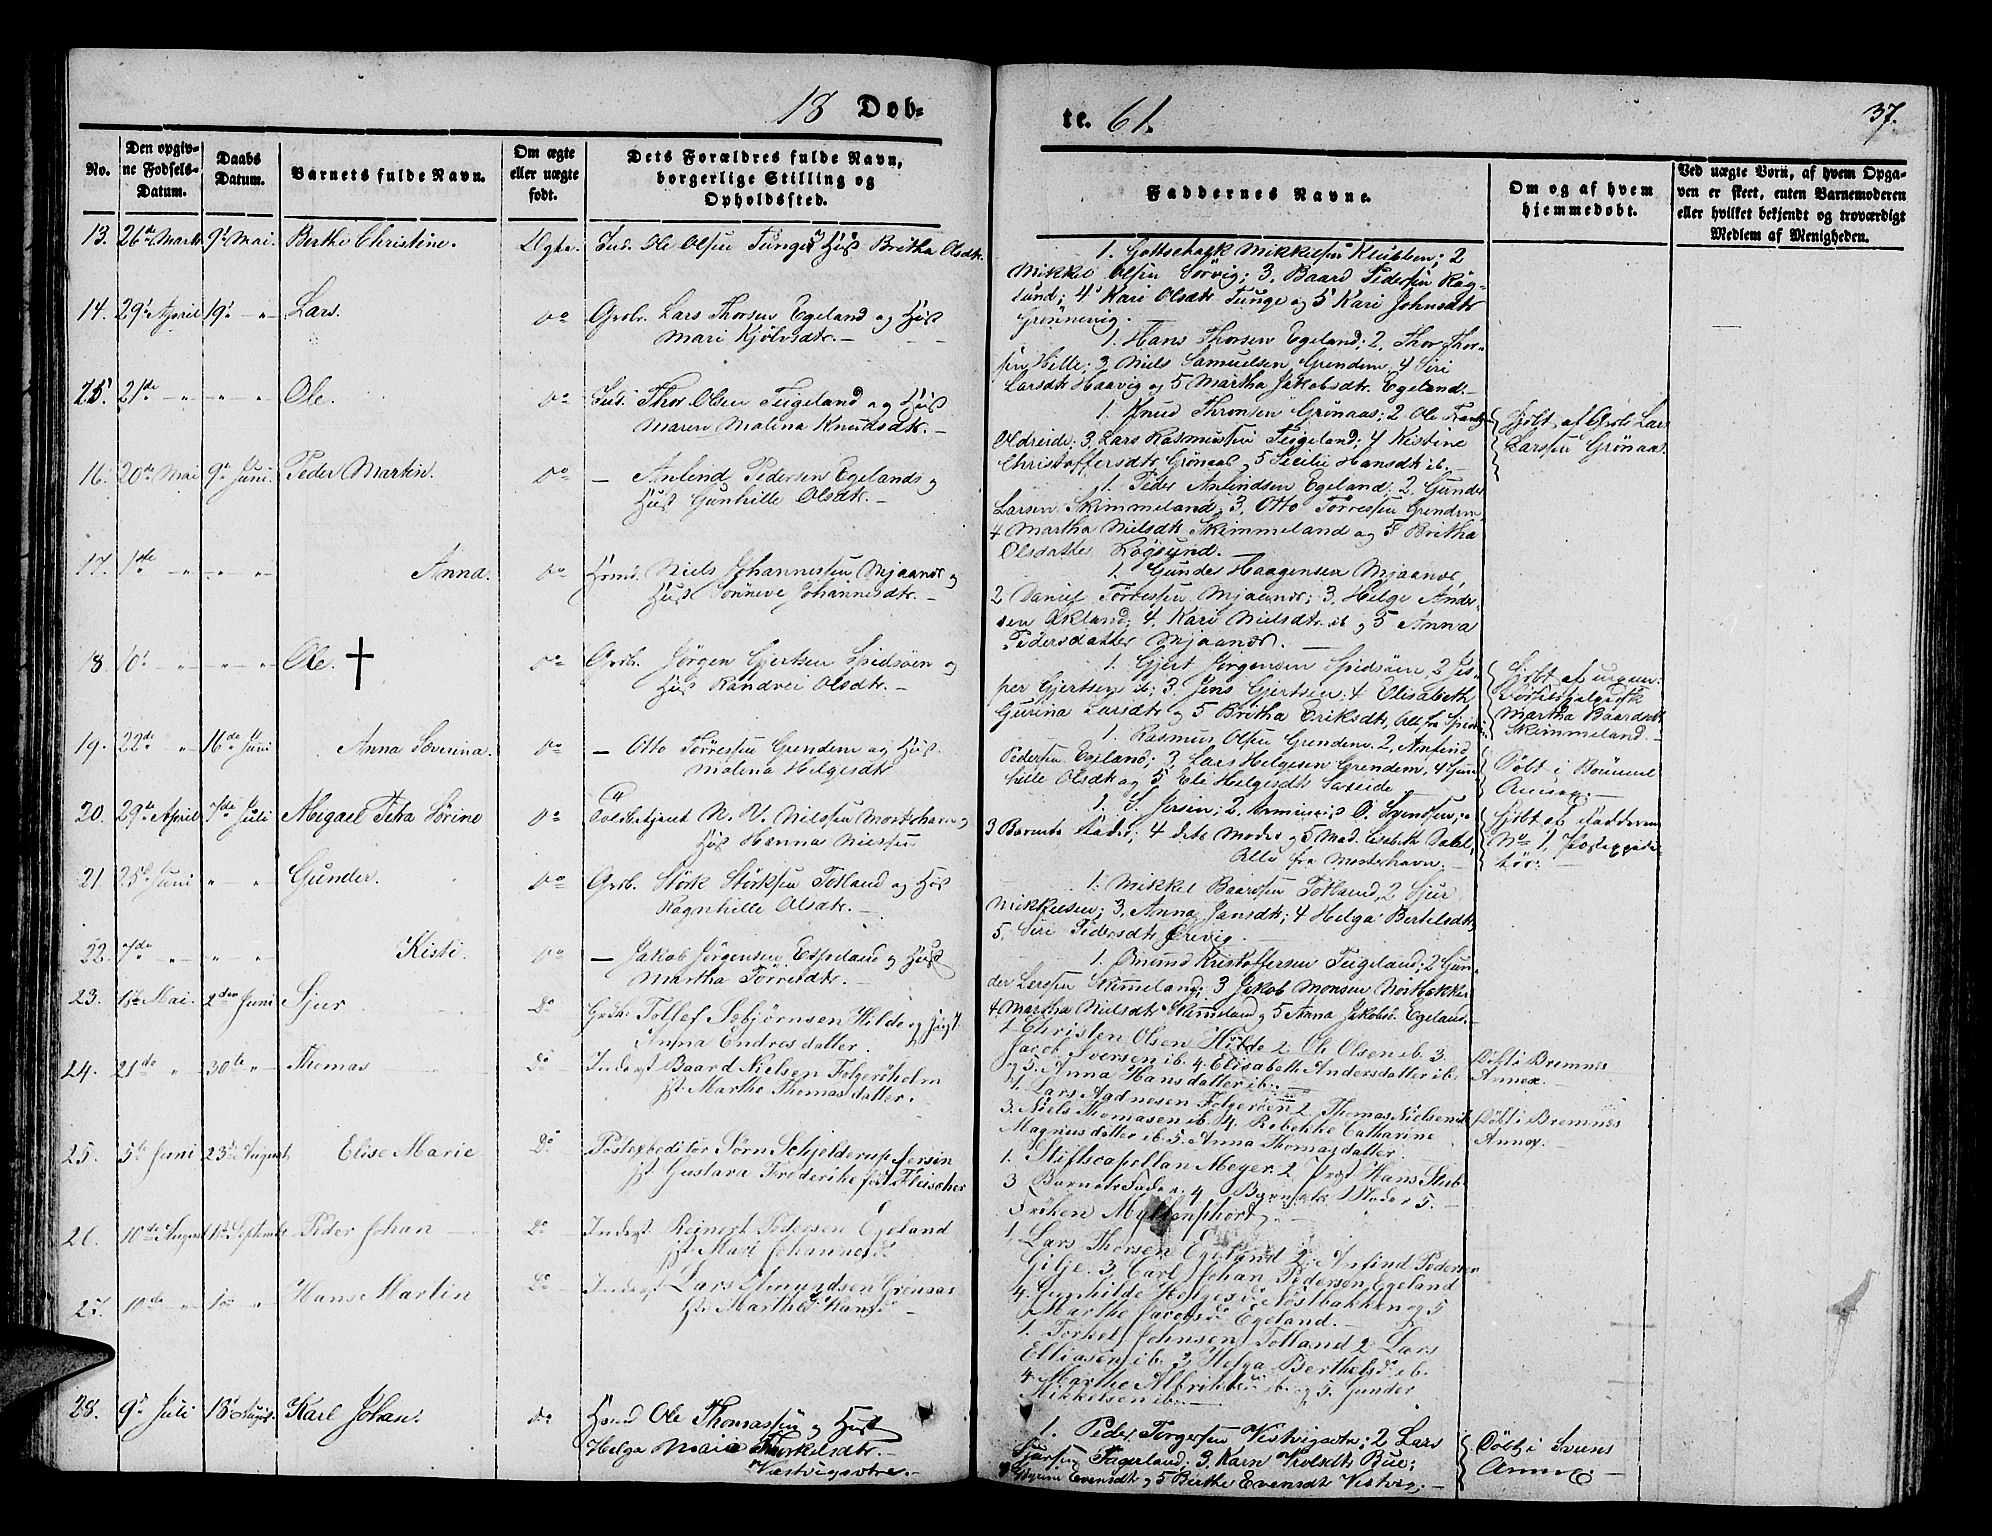 18 Døb=
te. 61.
37.
No.
Den opgiv-
ne Fødsels-
Datum.
Daabs
Datum.
Barnets fulde Navn.
Om ægte
eller uægte
født.
Dets Forældres fulde Navn,
borgerlige Stilling og
Opholdssted.
Faddernes Navne.
Om og af hvem
hjemmedøbt.
Ved uægte Børn, af hvem Opga-
ven er skeet, enten Barnemoderen
eller hvilket bekjendt og troværdigt
Medlem af Menigheden.
13. 26de Marts 9de Mai. Berthe Christine. Ægte. Ole Olsen Tunge Hus Britha Olsdtr.
1. Gottschalk Mikkelsen Klubben; 2
Mikkel Olsen Sørvig; 3. Baard Pedersen Røg-
sund; 4 Kari Olsdtr Tunge og 5 Kari Johnsdtr
Grønnevig.
14. 29de April 19de " Lars. do Grdbr. Lars Thorsen Egeland og Hus
Mari Kjølvsdtr. —
1. Hans Thorsen Egeland; 2. Thor Thor-
sen Hille; 3 Niels Samuelsen Grendem, 4 Siri
Larsdtr Haavig og 5 Martha Jakobsdtr. Egeland. —
15. 21de " " " Ole. do Ind. Thor Olsen Teigeland og Hus
Maren Malena Knudsdtr. —
1. Knud Thronsen Grønaas; 2 Ole
Uldreide; 3. Lars Rasmussen Teigeland; 4 Kistine
Christoffersdtr. Grønaas og 5 Sicilie Hansdtr ib. —
Hjdbt. af Lars
Larssen Grønaas.
16. 20de Mai 9de Juni. Peder Martin. do — Anfend Pedersen Egeland og
Hus Gunhille Olsdtr. —
1. Peder Anfindsen Egeland; 2. Gunder
Larsen Skimmeland, 3. Otto Tørresen Grendem,
4 Martha Nielsdtr Skimmeland og 5 Britha
Olsdatter Røgsund. —
17. 1de " " " Anna. do Hsmd. Niels Johannesen Mjaanes og
Hus Sønneve Johannesdtr. —
1. Gunder Haagensen Mjaanes,
2 Daniel Tørresen Mjaanes; 3. Helge Ander-
sen Økland; 4. Kari Nielsdtr. ib og 5 Anna
Pedersdatter Mjaanes. —
18 10de " " " Ole. † do Grdb. Jørgen Gjertsen Spidsøen og
Hus Randvei Olsdtr. —
1. Gjert Jørgensen Spidsøen, 2 Jes-
per Gjertsen ib; 3. Jens Gjertsen. 4 Elisabeth
Gurina Larsdtr og 5 Britha Eriksdtr, Alle fra Spids-
Hjdbt af
Martha Baardsdtr
Skimmeland. —
19. 22de " 16de Juni Anna Severina. do — Otto Tørresen Grendem og Hus.
Malena Helgesdtr
1. Rasmus Olsen Grendem, 2. Anfind
Pedersen Egeland; 3. Lars Helgesen Grendem, 4 Gun-
hille Olsdtr og 5 Eli Helgesdtr Sareide
Døbt i Bømmel
Annex. —
20. 29de April 7de Juli Migael Petra Sørine do Toldbetjent N. N. Nilsen Mosterhavn og
Hus Hanna Nilsen
1. S. Jersin; 2. O. Svendsen;
3 Barnets Fader; 4 dets Moder og 5 Mad. Lisebeth
Alle fra Mosterhavn. —
Hjdbt af Fadderen
No 1, Postexpedi-
tør.
21 25de Juni " " Gunder. do Grdb. Størk Størksen Totland og Hus
Ragnhille Olsdtr. —
1. Mikkel Baardsen Totland, 2 Sjur
Mikkelsen; 3. Anna Jansdtr; 4 Helga Bertelsdtr,
5. Siri Pedersdtr Ørevig.
22. 7de " " " Kisti. do — Jakob Jørgensen Espeland og Hus
Martha Tørresdtr. —
1. Ømund Kristoffersen Teigeland; 2 Gun-
der Larsen Skimmeland; 3 Jakob Monsen Nortbækker
4 Martha Nielsdtr Skimmeland og 5 Anna Jakobsd. Egeland. —
23. Mai. 2den Juni Sjur Do Grdb. Tollef Sebjørnsen Hilde og Hust
Anna Endresdatter.
1 Christen Olsen Hilde 2. Ole Olsen ib. 3.
Jacob Iversen ib. 4. Elisabeth Andersdatter ib.
og 5. Anna Hansdatter ib. —
Døbt i Bremnes
Annex. —
24. 21de " 30te " Thomas Do Inderst Baard Nielsen Folgerøholm
Hst. Marthe Thomasdatter. —
1. Lars Aadnesen Folgerøen 2. Thomas Nielsen ib
3. Niels Thomasen ib. 4. Rebekke Catharine
Magnusdatter ib. 5. Anna Thomasdatter.
Døbt i Bremnes
Annex. —
25. 5te Juni 23de August Elise Marie Do Postexpeditør Sørn Schjelderup Jersin
Hst. Gustava Frederikke født Fleischer
1. Stiftscapellan Meyer. 2. Prost Hans Stub
3 Barnets Fader 4. Barnets Moder 5.
Frøken Myltenphort.
26. 10de August 1ste September Peder Johan Do Inderst Reinert Pedersen Egeland
Hst. Mari Johannesd.
1. Lars Thorsen Egeland 2. Anfind Pedersen
Gilje. 3. Carl Johan Pedersen Egeland
4. Gunhilde Helgesd. Nøstbakken og 5
Marthe Jacobsd Egeland. —
27. 10de " " Hans Martin Do Inderst Lars Grønaas
Hst. Marthe Hansd —
1. Torkel Johnsen Totland 2. Lars
Elliasen ib. 3 Helga Berthelsd. ib.
4. Marthe og 5. Gunder
Mikkelsen ib. —
28. 9de Juli 18de August. Karl Johan. do Hsmd Ole Thomassen og Hust
Helga Maria Thorkelsdtr. —
Væstvigsøtre. —
1. Peder Torgersen Vestvigsøtre; 2 Lars
Sjursen Fagerland; 3. Karn Bue;
4 Evensdtr og 5 Berthe Evensdtr Vestvig. —
Døbt i Sveens
Annex